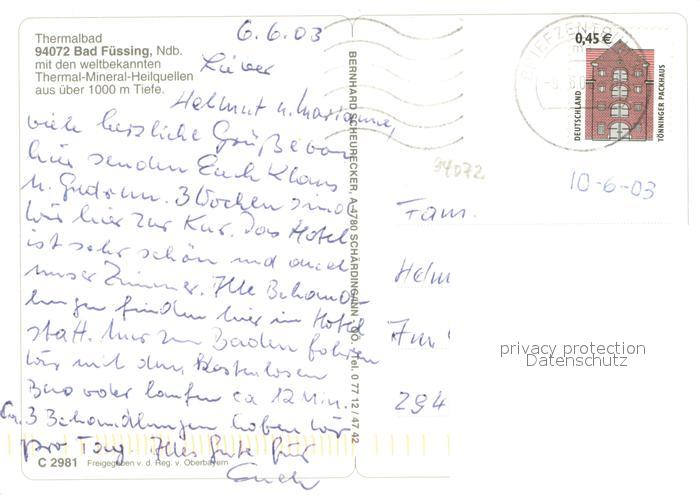 Thermalbad
94072 Bad Füssing, Ndb.
mit den weltbekannten
Thermal-Mineral-Heilquellen
aus über 1000 m Tiefe.
6.6.03
Lieber
Helmut u. Marianne,
viele herzliche Grüße von
hier senden Euch Klaus
u. Gudrun. 3 Wochen sind
wir hier zur Kur. Das Hotel
ist sehr schön und auch
unser Zimmer. Alle Behand-
lungen finden hier im Hotel
statt. Nur zum Baden fahren
wir mit dem kostenlosen
Bus oder laufen ca 12 Min.
Ca. 3 Behandlungen haben wir
pro Tag. Alles Gute für
Euch
C 2981 Freigegeben v. d. Reg. v. Oberbayern
BERNHARD SCHEURECKER, A-4780 SCHÄRDING/INN, OÖ., Tel. 0 77 12 / 47 42
BRIEFZENTRUM
0,45 €
DEUTSCHLAND
TÖNNINGER PACKHAUS
94072
10-6-03
Fam.
Helm
Am
294
privacy protection
Datenschutz